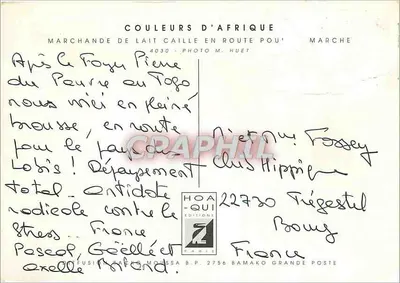 COULEURS D'AFRIQUE
MARCHANDE DE LAIT CAILLE EN ROUTE POU' MARCHE
4030 - PHOTO M. HUET
Après le Foyer Pierre
du Pauvre au Togo
nous voici en pleine
brousse, en route
pour le pays des
Lobis ! Dépaysement
total - antidote
radicale contre le
stress.. France
Pascal, Gaëlle et
Axelle
Fossey
Club Hippique
22730 Trégastel
Bourg
France
CPRAPHIL
HOA
QUI
EDITIONS
PARIS
B.P. 2756 BAMAKO GRANDE POSTE